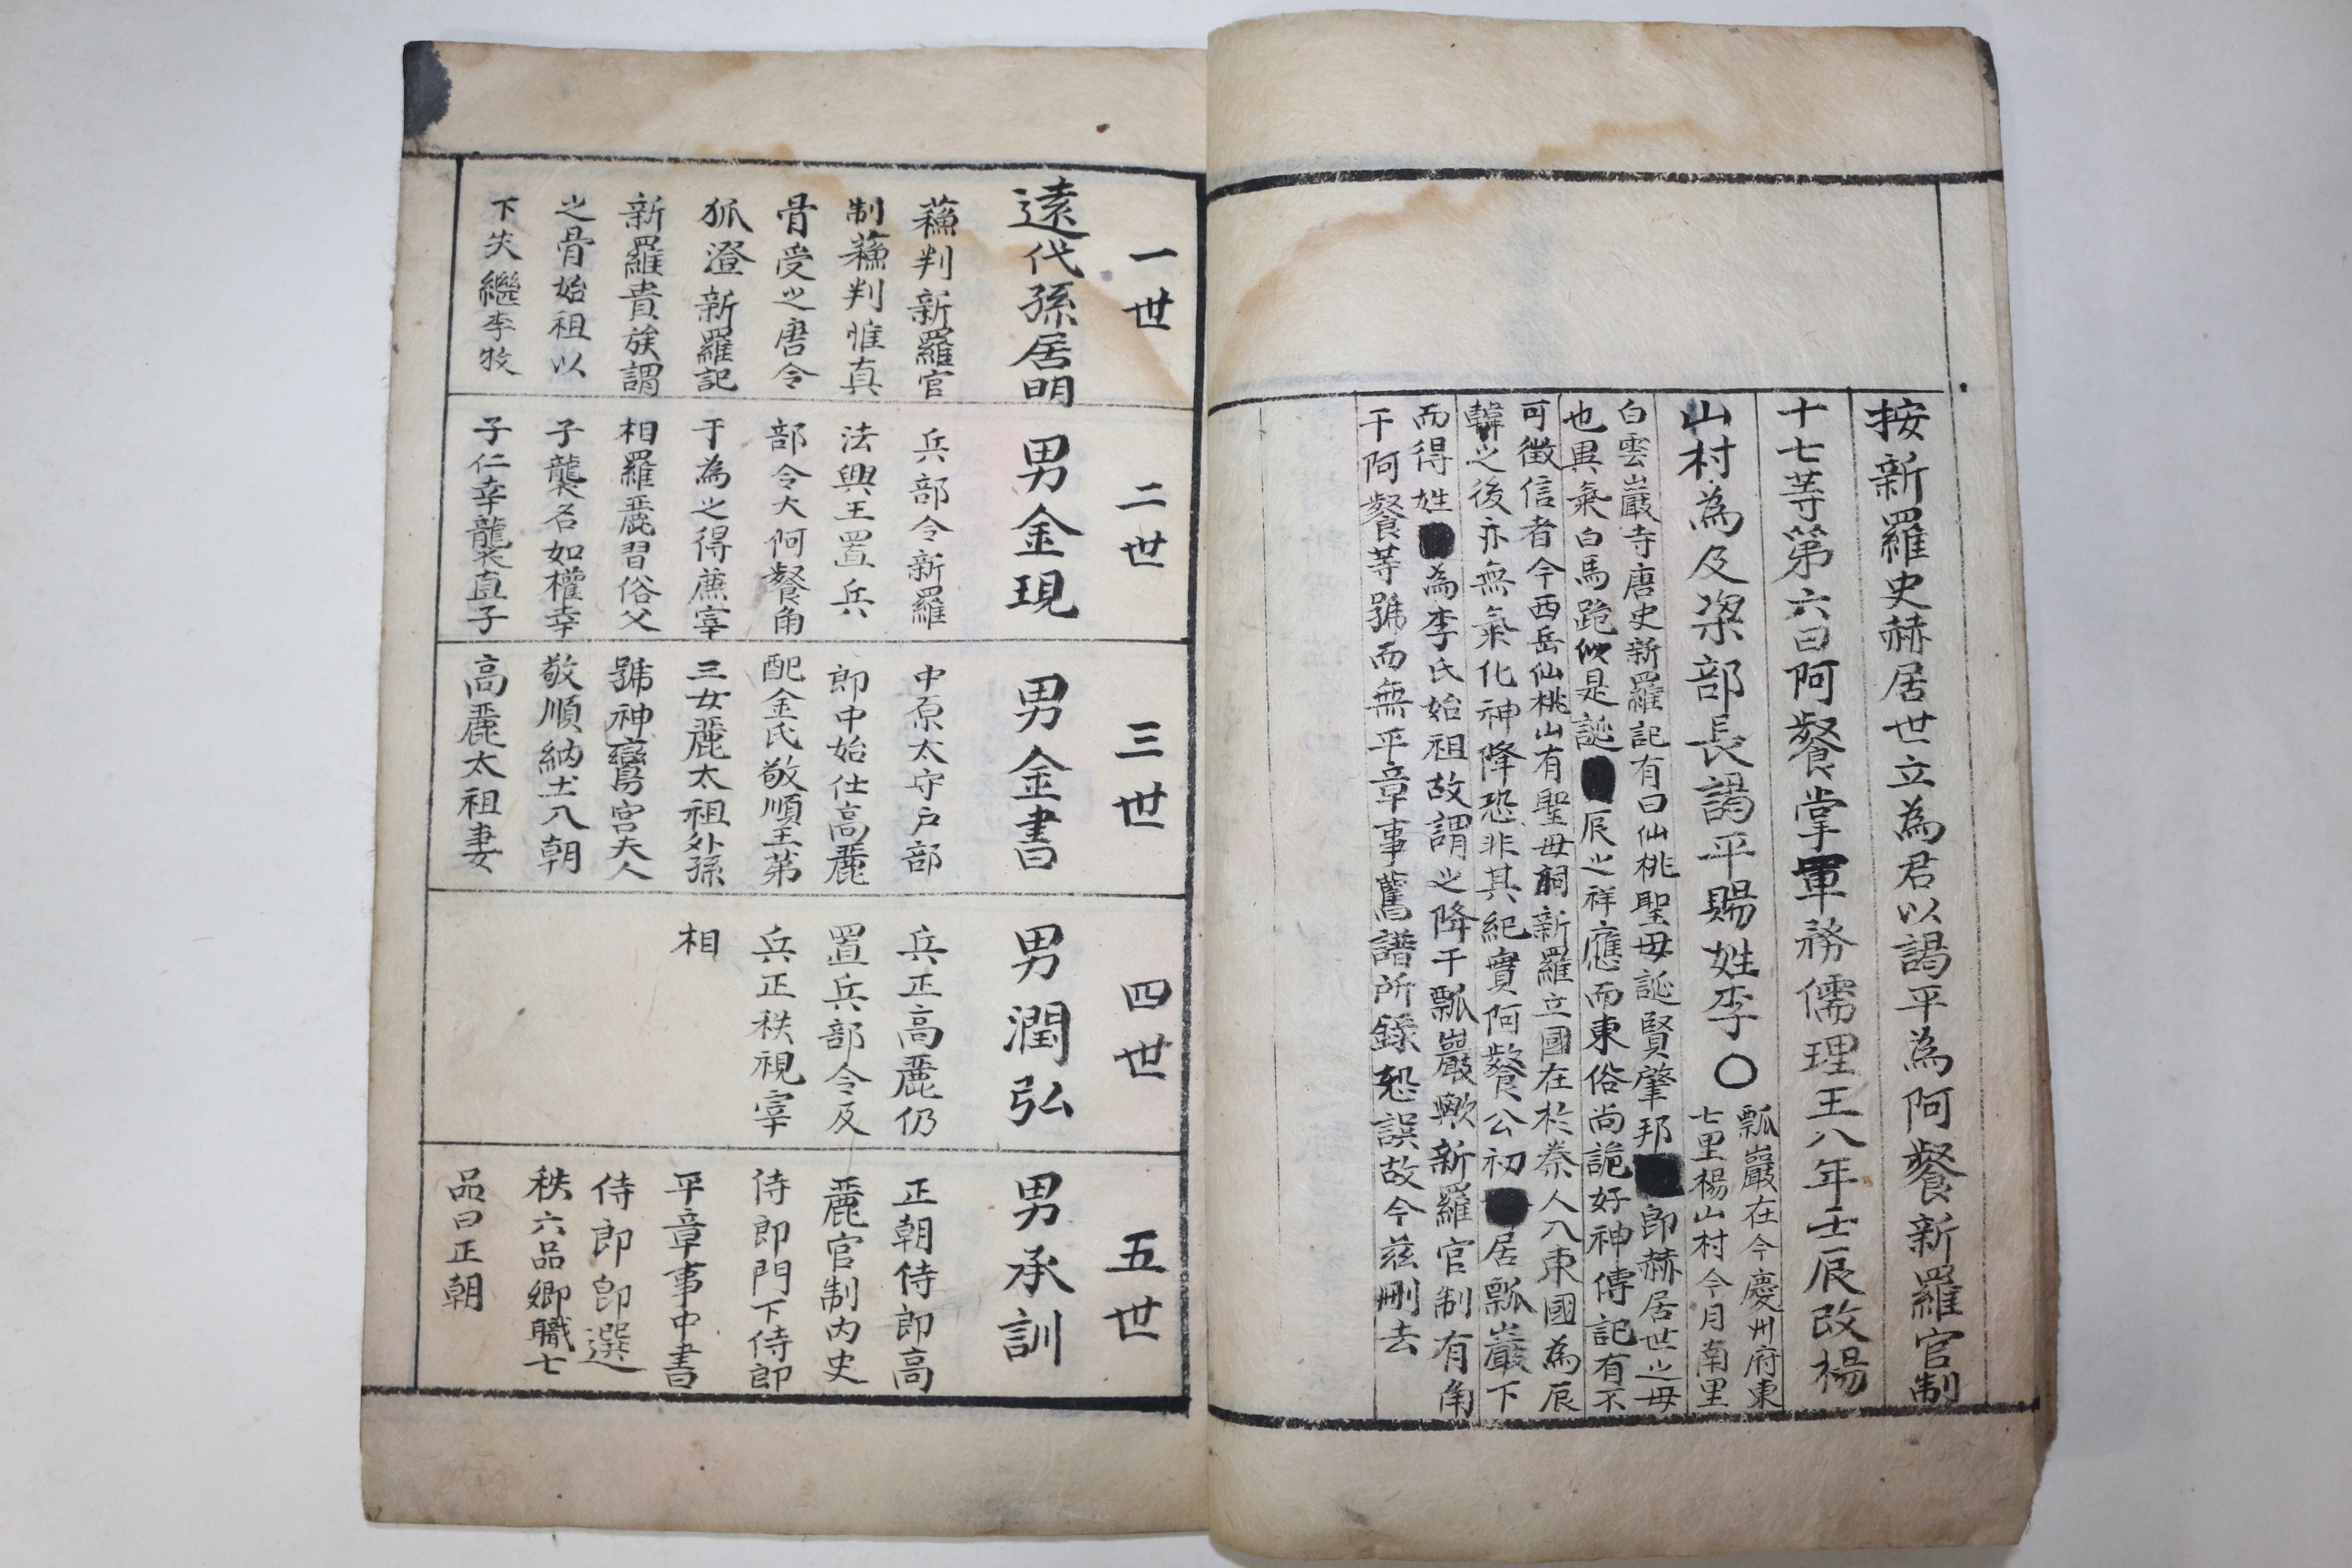 按新羅史赫居世立為君以謁平為阿飱新羅官制
十七等第六曰阿飱掌軍務儒理王八年壬辰改楊
山村為及梁部長謁平賜姓李〇
瓢巖在今慶州府東
七里楊山村今月南里
白雲巖寺唐史新羅記有曰仙桃聖母誕賢肇邦即赫居世之母
也異氣白馬跪似是誕辰之祥應而東俗尚詭好神傳記有不
可徵信者今西岳仙桃山有聖母祠新羅立國在於秦人入東國為辰
韓之後亦無氣化神降恐非其紀實阿飱公初居瓢巖下
而得姓為李氏始祖故謂之降于瓢巖歟新羅官制有角
干阿飱等號而無平章事舊譜所錄恐誤故今玆刪去
一世
遠代孫居明
蘓判新羅官
制蘓判惟真
骨受之唐令
狐澄新羅記
新羅貴族謂
之骨始祖以
下失繼李牧
二世
男金現
兵部令新羅
法興王置兵
部令大阿飱角
干為之得庶宰
相羅麗習俗父
子襲名如權幸
子仁幸龔直子
三世
男金書
中原太守戶部
郎中始仕高麗
配金氏敬順王第
三女麗太祖外孫
號神鸞宮夫人
敬順納土入朝
高麗太祖妻
四世
男潤弘
兵正高麗仍
置兵部令及
兵正秩視宰
相
五世
男承訓
正朝侍郎高
麗官制內史
侍郎門下侍郎
平章事中書
侍郎郎選
秩六品鄉職七
品曰正朝